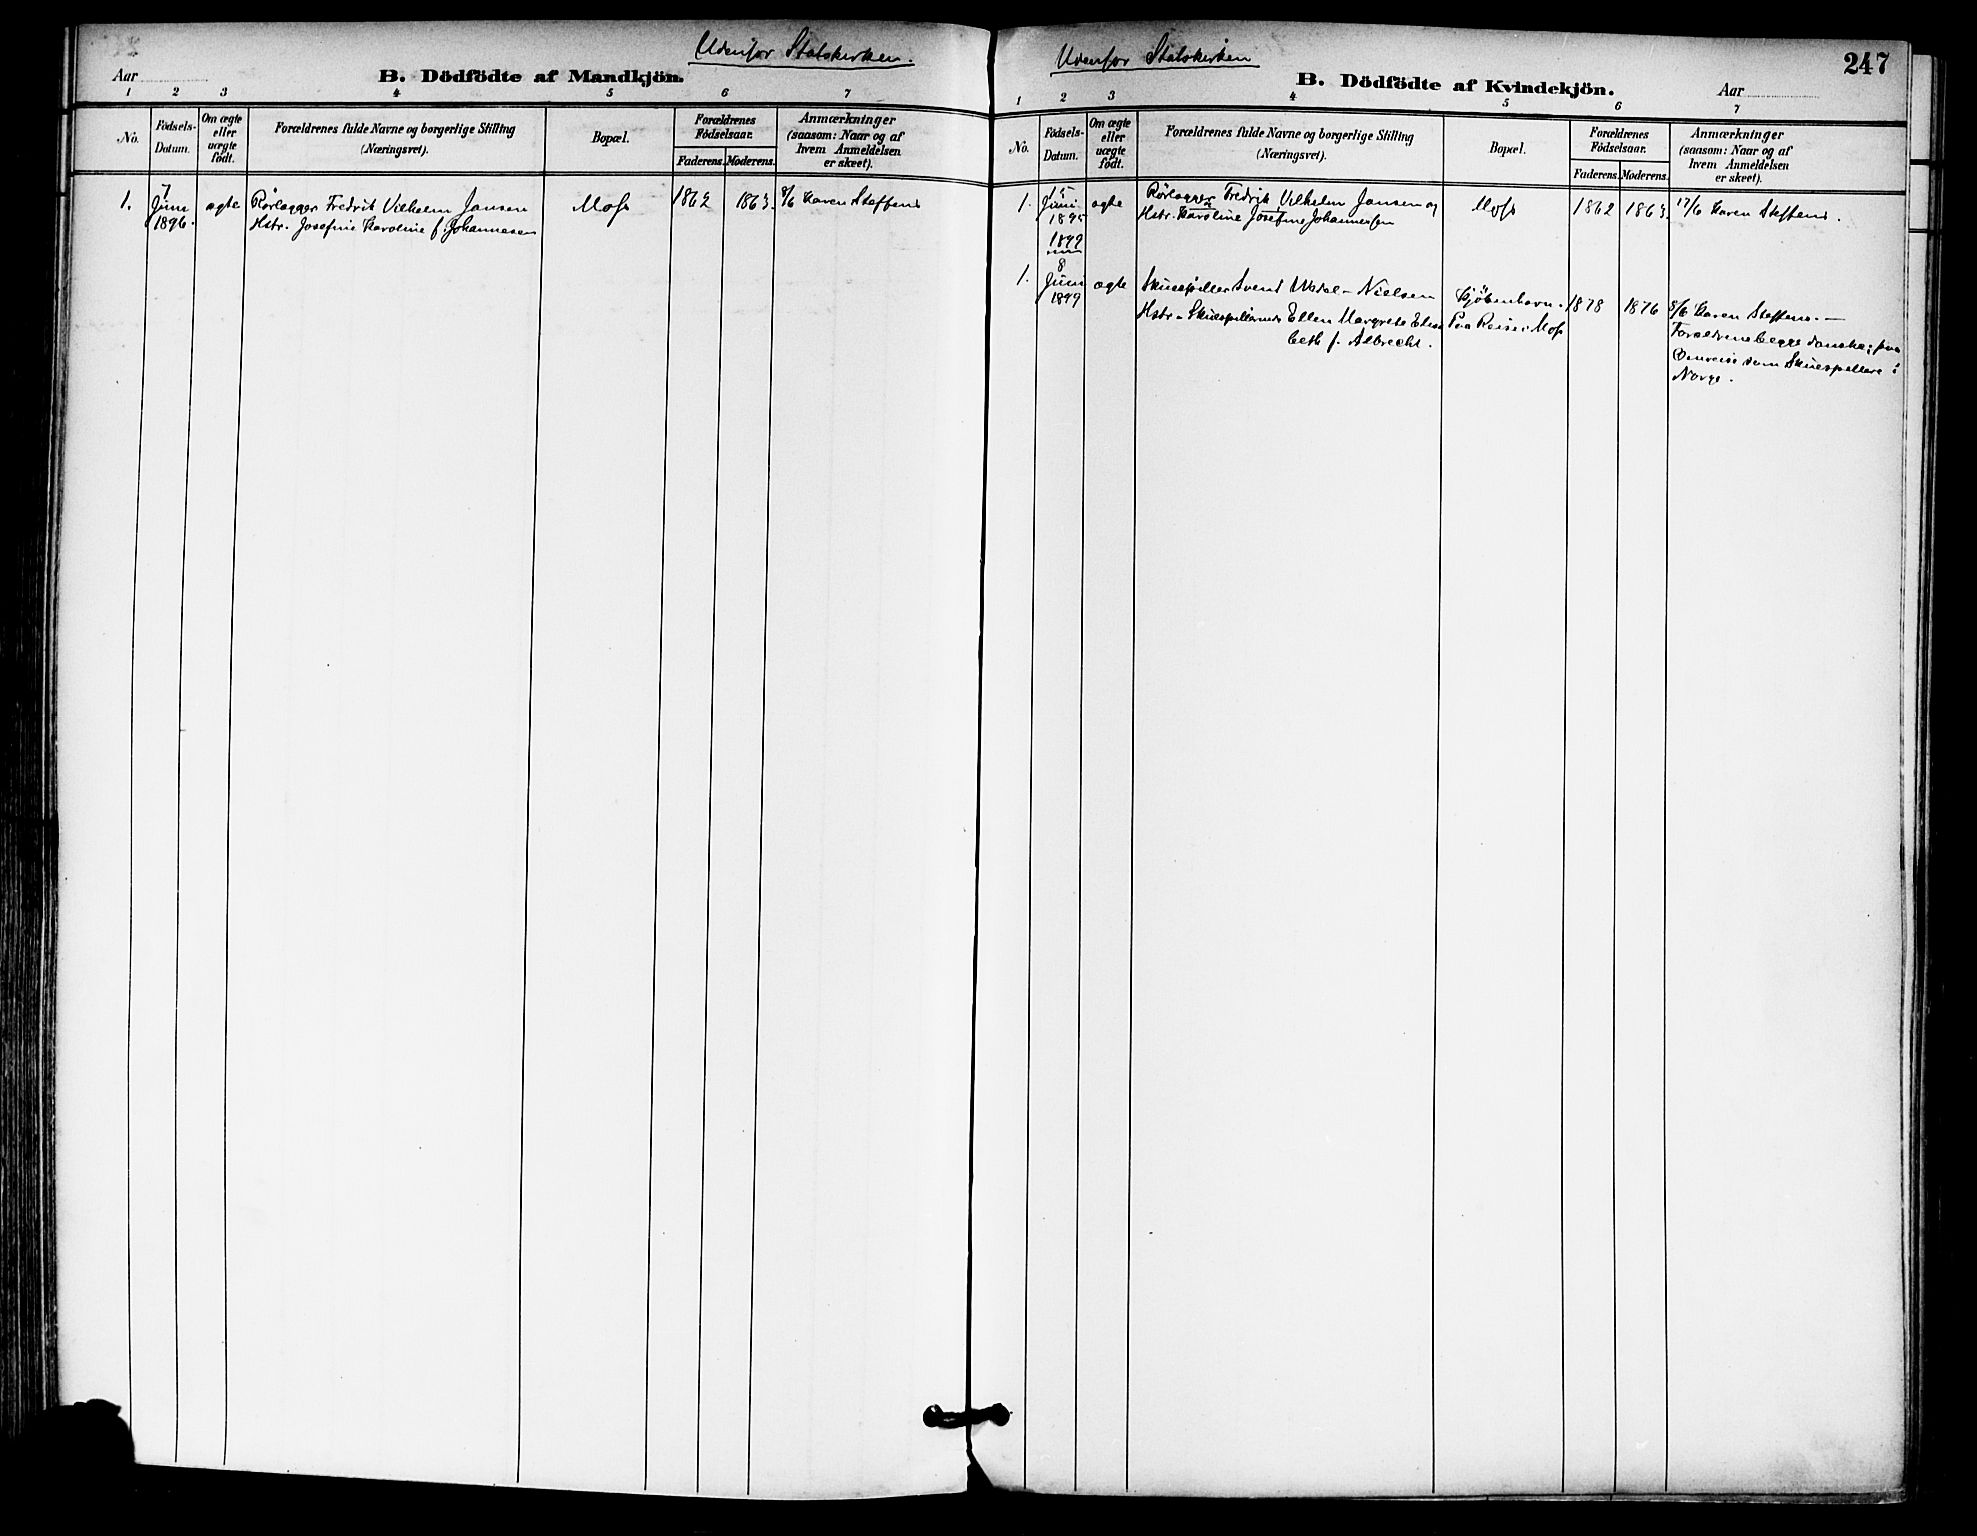 Udenfor Statskirken.
Aar
B. Dödfödte af Mandkjön.
1 2 3 4 5 6 7
No.
Födsels-
Datum.
Om ægte
eller
uægte
födt.
Forældrenes fulde Navne og borgerlige Stilling
(Næringsvei).
Bopæl.
Forældrenes
Födselsaar.
Faderens. Moderens.
Anmærkninger
(saasom: Naar og af
hvem Anmeldelsen
er skeet).
1.
7
Juni
1896.
ægte
Rørlægger Fredrik Vilhelm Jansen
Hstr. Josefine Karoline f. Johannesen
Moss
1862 1863.
8/6 Karen Steffens
Udenfor Statskirken
247
B. Dödfödte af Kvindekjön.
Aar
1 2 3 4 5 6 7
No.
Födsels-
Datum.
Om ægte
eller
uægte
födt.
Forældrenes fulde Navne og borgerlige Stilling
(Næringsvei).
Bopæl.
Forældrenes
Födselsaar.
Faderens. Moderens.
Anmærkninger
(saasom: Naar og af
hvem Anmeldelsen
er skeet).
1.
15
Juni
1895
ægte
Rørlægger Fredrik Vilhelm Jansen og
Hstr. Karoline Josefine Johannessen
Moss
1862 1863.
17/6 Karen Steffens.
1899
1.
8
Juni
1899
ægte
Skuespiller Svend Wedel-Nielsen
Hstr. Skuespillerinde Ellen Margrete Elisa
beth f. Albrecht.
Kjöbenhavn.
Paa Reise i Moss
1878 1876
8/6 Karen Steffens. —
Forældrene begge danske; paa
Omreise som Skuespillere i
Norge.